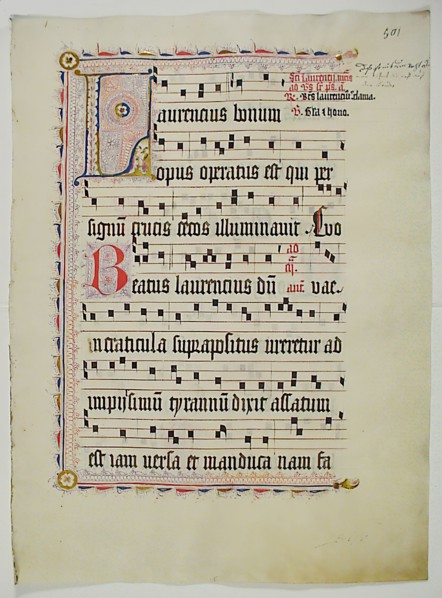 501
Sci laurencij mris
ad vs sr ps. a.
R. Btus laurenciꝰ clama.
Laurencius bonum
V. Gla t hono.
opus operatus est qui per
signū crucis cecos illuminauit Auo
ad
Beatus laurencius dū ant vac.
incraticula suprapositus ureretur ad
impijssimū tyrannū dixit assatum
est iam uersa et manduca nam fa